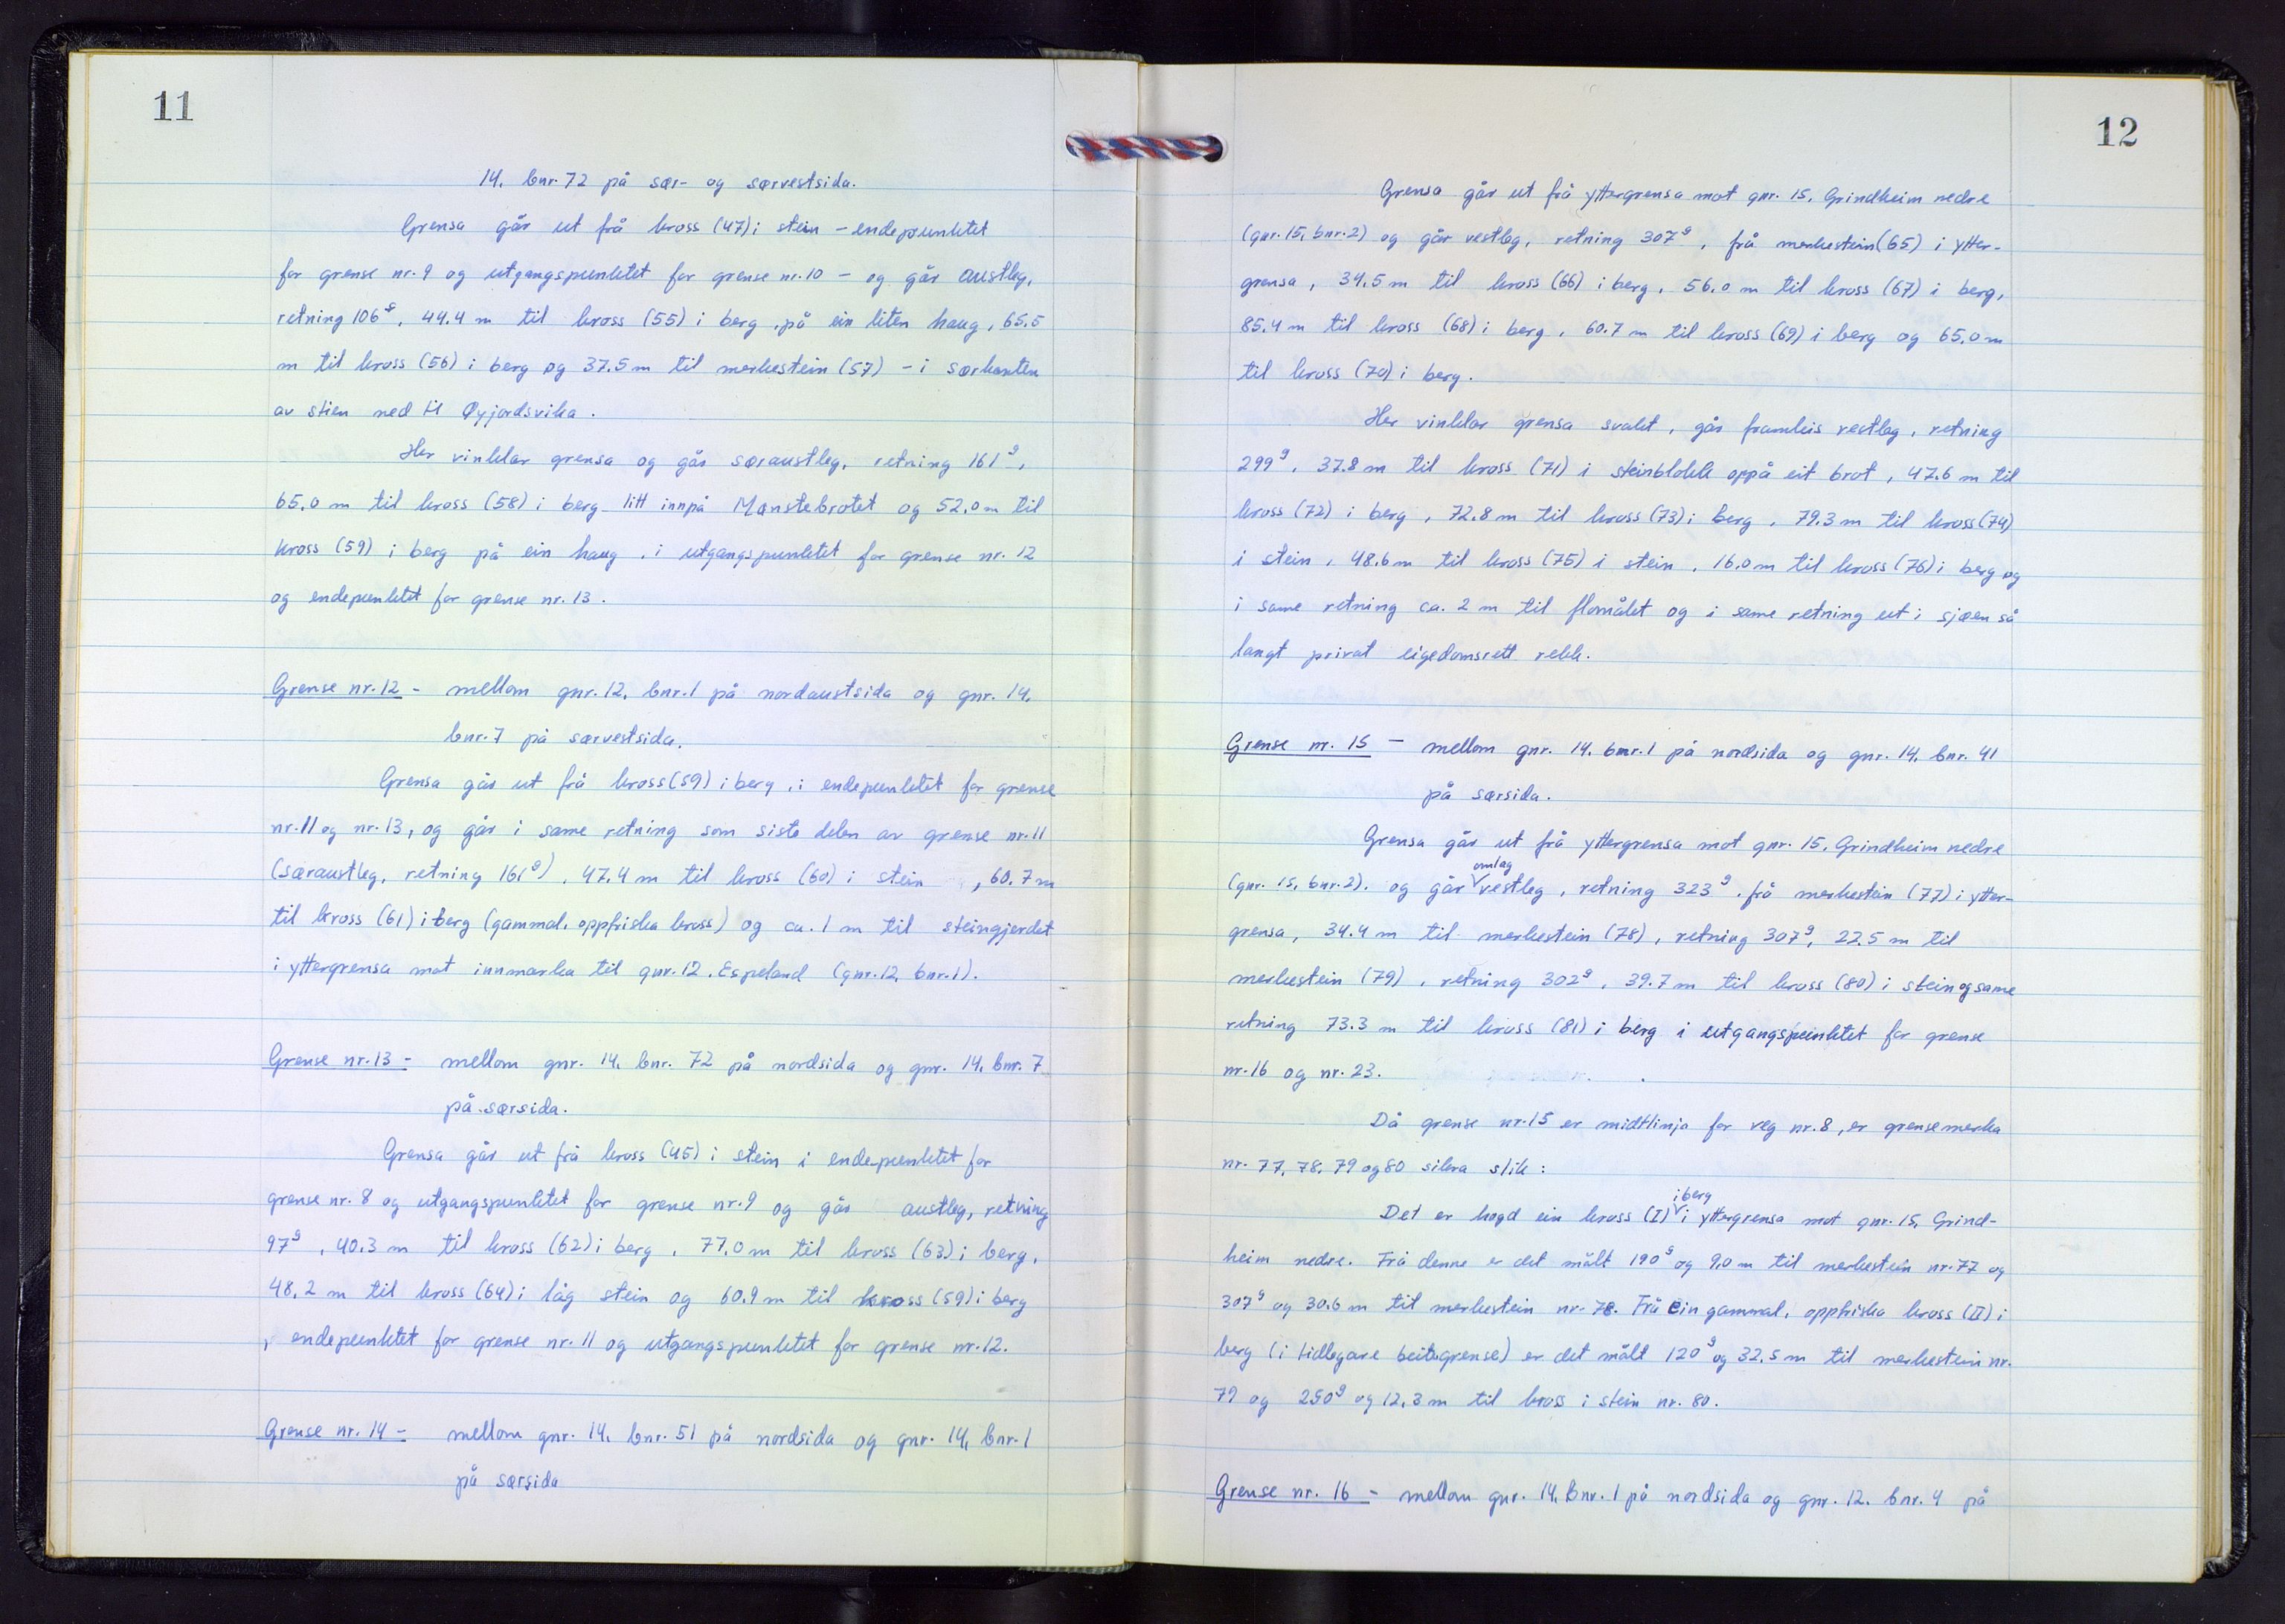 11
14, bnr. 72 på sør- og sørvestsida.
Grensa går ut frå kross (47) i stein - endepunktet
for grense nr. 9 og utgangspunktet for grense nr. 10 - og går austleg,
retning 106g, 44.4 m til kross (55) i berg, på ein liten haug, 65.5
m til kross (56) i berg og 37.5 m til merkestein (57) - i sørkanten
av stien ned til Øyjordsvika.
Her vinklar grensa og går søraustleg, retning 161g,
65.0 m til kross (58) i berg litt innpå Mønstebrotet og 52.0 m til
kross (59) i berg på ein haug, i utgangspunktet for grense nr. 12
og endepunktet for grense nr. 13.
Grense nr. 12 - mellom gnr. 12, bnr. 1 på nordaustsida og gnr. 14,
bnr. 7 på sørvestsida.
Grensa går ut frå kross (59) i berg, i endepunktet for grense
nr. 11 og nr. 13, og går i same retning som siste delen av grense nr. 11
(søraustleg, retning 161g), 47.4 m til kross (60) i stein, 60.7 m
til kross (61) i berg (gammal, oppfriska kross) og ca. 1 m til steingjerdet
i yttergrensa mot innmarka til gnr. 12, Espeland (gnr. 12, bnr. 1).
Grense nr. 13 - mellom gnr. 14, bnr. 72 på nordsida og gnr. 14, bnr. 7
på sørsida.
Grensa går ut frå kross (45) i stein i endepunktet for
grense nr. 8 og utgangspunktet for grense nr. 9 og går austleg, retning
97g, 40.3 m til kross (62) i berg, 77.0 m til kross (63) i berg,
48.2 m til kross (64) i låg stein og 60.9 m til kross (59) i berg
, endepunktet for grense nr. 11 og utgangspunktet for grense nr. 12.
Grense nr. 14 - mellom gnr. 14, bnr. 51 på nordsida og gnr. 14, bnr. 1
på sørsida
12
Grensa går ut frå yttergrensa mot gnr. 15, Grindheim nedre
(gnr. 15, bnr. 2) og går vestleg, retning 307g, frå merkestein (65) i ytter-
grensa, 34.5 m til kross (66) i berg, 56.0 m til kross (67) i berg,
85.4 m til kross (68) i berg, 60.7 m til kross (69) i berg og 65.0 m
til kross (70) i berg.
Her vinklar grensa svakt, går framleis vestleg, retning
299g, 37.8 m til kross (71) i steinblokk oppå eit brot, 47.6 m til
kross (72) i berg, 72.8 m til kross (73) i berg, 79.3 m til kross (74)
i stein, 48.6 m til kross (75) i stein, 16.0 m til kross (76) i berg og
i same retning ca. 2 m til flomålet og i same retning ut i sjøen så
langt privat eigedomsrett rekk.
Grense nr. 15 - mellom gnr. 14, bnr. 1 på nordsida og gnr. 14, bnr. 41
på sørsida.
Grensa går ut frå yttergrensa mot gnr. 15, Grindheim nedre
(gnr. 15, bnr. 2). og går omlag vestleg, retning 323g, frå merkestein (77) i ytter-
grensa, 34.4 m til merkestein (78), retning 307g, 22.5 m til
merkestein (79), retning 302g, 39.7 m til kross (80) i stein og same
retning 73.3 m til kross (81) i berg i utgangspunktet for grense
nr. 16 og nr. 23.
Då grense nr. 15 er midtlinja for veg nr. 8, er grensemerka
nr. 77, 78, 79 og 80 sikra slik:
Det er hogd ein kross (I) i berg i yttergrensa mot gnr. 15, Grind-
heim nedre. Frå denne er det målt 190g og 9,0 m til merkestein nr. 77 og
307g og 30.6 m til merkestein nr. 78. Frå ein gammal, oppfriska kross (II) i
berg (i tidlegare beitegrense) er det målt 120g og 32,5 m til merkestein nr.
79 og 250g og 12,3 m til kross i stein nr. 80.
Grense nr. 16 - mellom gnr. 14, bnr. 1 på nordsida og gnr. 12. bnr. 4 på